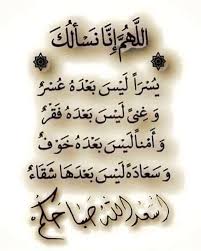 اللهُمَّ إِنَّا نَسْأَلُكَ
يُسْرَاً لَيْسَ بَعْدَهُ عُسْرٌ
وَ غِنَىً لَيْسَ بَعْدَهُ فَقْرٌ
وَ أَمْنَاً لَيْسَ بَعْدَهُ خَوْفٌ
وَ سَعَادَةً لَيْسَ بَعْدَهَا شَقَاءٌ
اسعد الله صباحكم